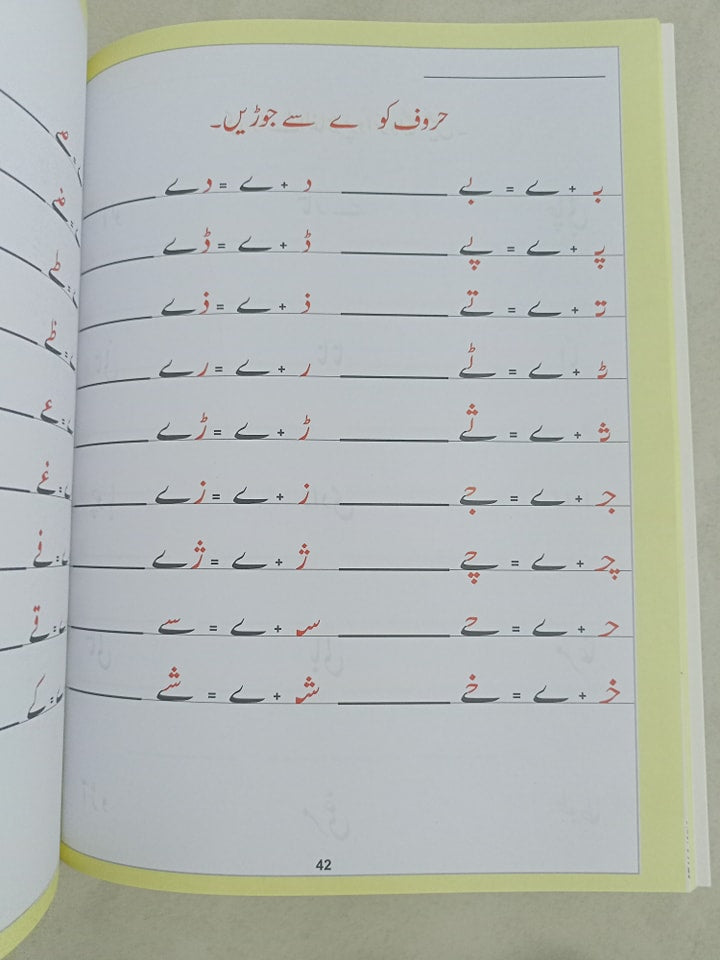 حروف کو ے سے جوڑیں۔
بـ + ے = بے د + ے = دے
پـ + ے = پے ڈ + ے = ڈے
تـ + ے = تے ذ + ے = ذے
ٹـ + ے = ٹے ر + ے = رے
ثـ + ے = ثے ڑ + ے = ڑے
جـ + ے = جے ز + ے = زے
چـ + ے = چے ژ + ے = ژے
حـ + ے = حے سـ + ے = سے
خـ + ے = خے شـ + ے = شے
42